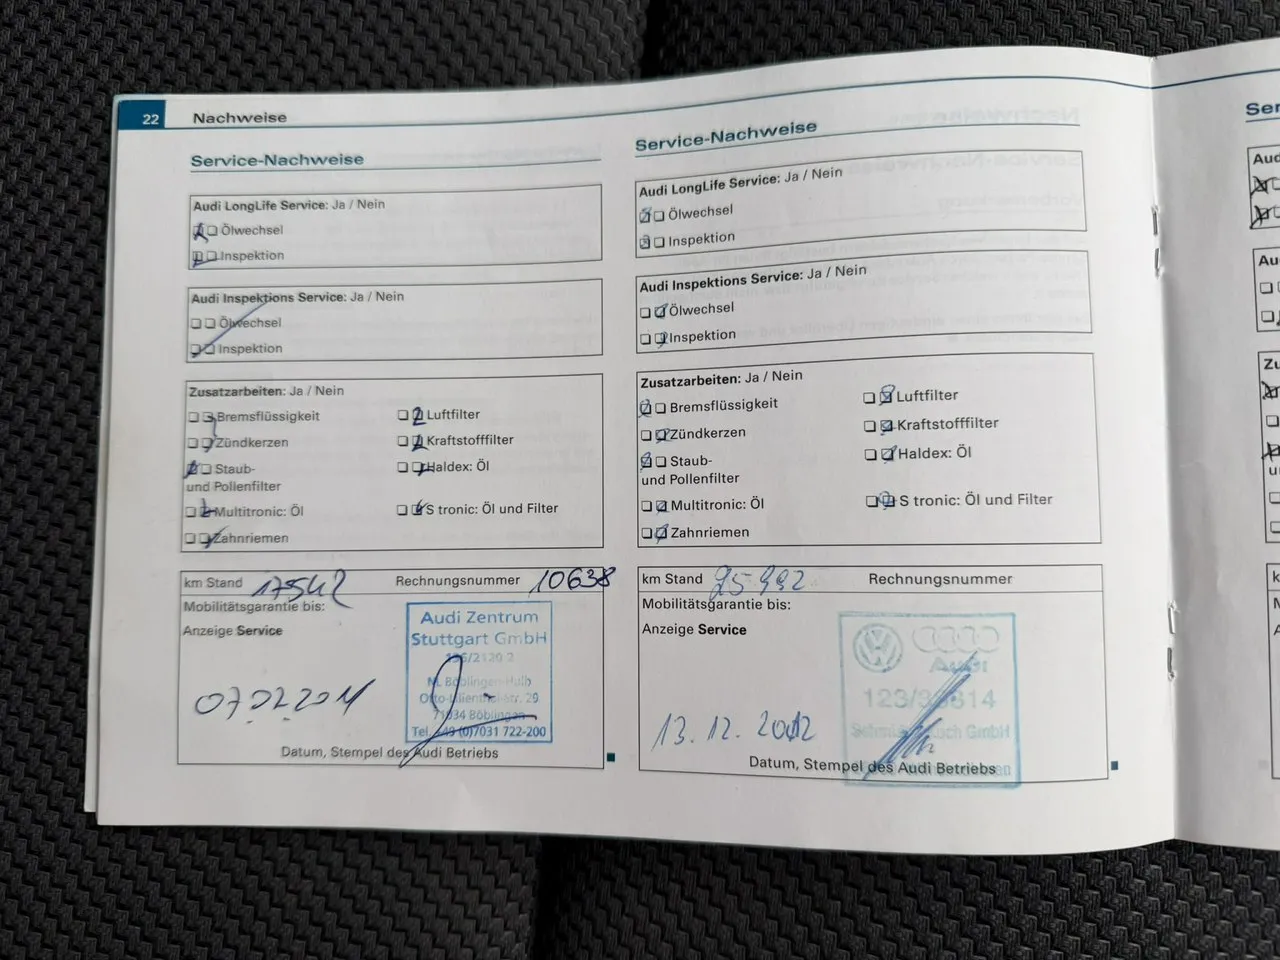 22 Nachweise
Service-Nachweise
Audi LongLife Service: Ja / Nein
Ölwechsel
Inspektion
Audi Inspektions Service: Ja / Nein
Ölwechsel
Inspektion
Zusatzarbeiten: Ja / Nein
Bremsflüssigkeit
Luftfilter
Zündkerzen
Kraftstofffilter
Staub-
und Pollenfilter
Haldex: Öl
Multitronic: Öl
S tronic: Öl und Filter
Zahnriemen
km Stand 17542
Rechnungsnummer 10638
Mobilitätsgarantie bis:
Anzeige Service
Audi Zentrum
Stuttgart GmbH
NL Böblingen-Hulb
Otto-Lilienthal-Str. 29
71034 Böblingen
Tel. +49 (0)7031 722-200
07.02.2011
Datum, Stempel des Audi Betriebs
Service-Nachweise
Audi LongLife Service: Ja / Nein
Ölwechsel
Inspektion
Audi Inspektions Service: Ja / Nein
Ölwechsel
Inspektion
Zusatzarbeiten: Ja / Nein
Bremsflüssigkeit
Luftfilter
Zündkerzen
Kraftstofffilter
Staub-
und Pollenfilter
Haldex: Öl
Multitronic: Öl
S tronic: Öl und Filter
Zahnriemen
km Stand
Rechnungsnummer
Mobilitätsgarantie bis:
Anzeige Service
Audi
GmbH
13.12.2012
Datum, Stempel des Audi Betriebs